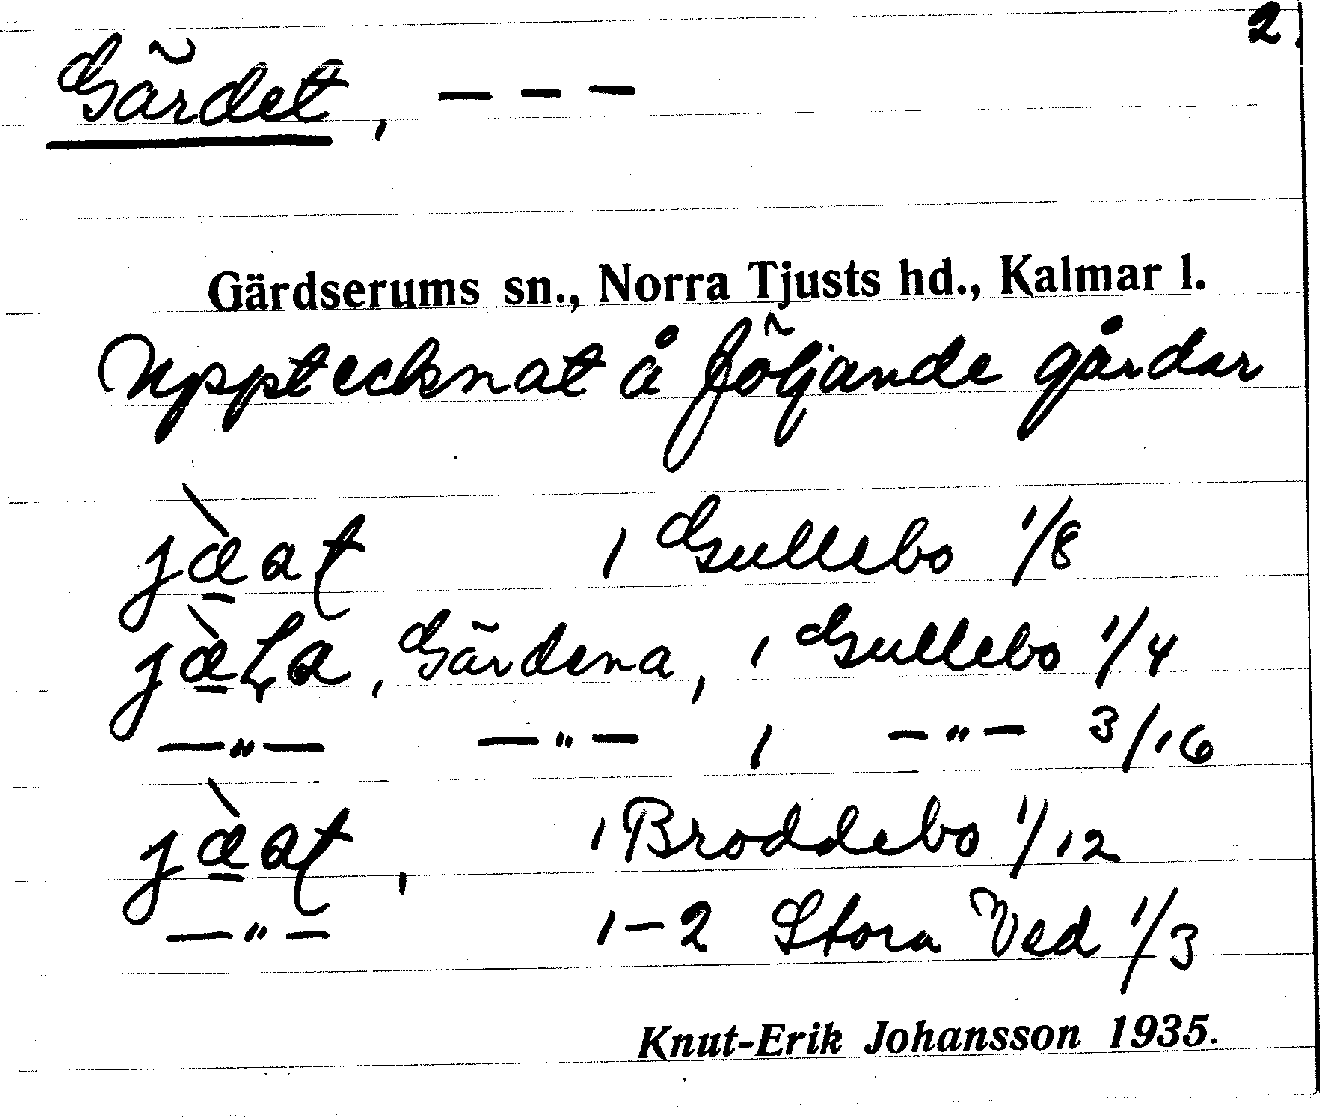 2.
Gärdet, — — —
Gärdserums sn., Norra Tjusts hd., Kalmar l.
Upptecknat å följande gårdar
1 Gullebo 1/8
Gärdena, 1 Gullebo 1/4
—"— —"— 1 —"— 3/16
1 Broddebo 1/12
—"— 1-2 Stora Ved 1/3
Knut-Erik Johansson 1935.